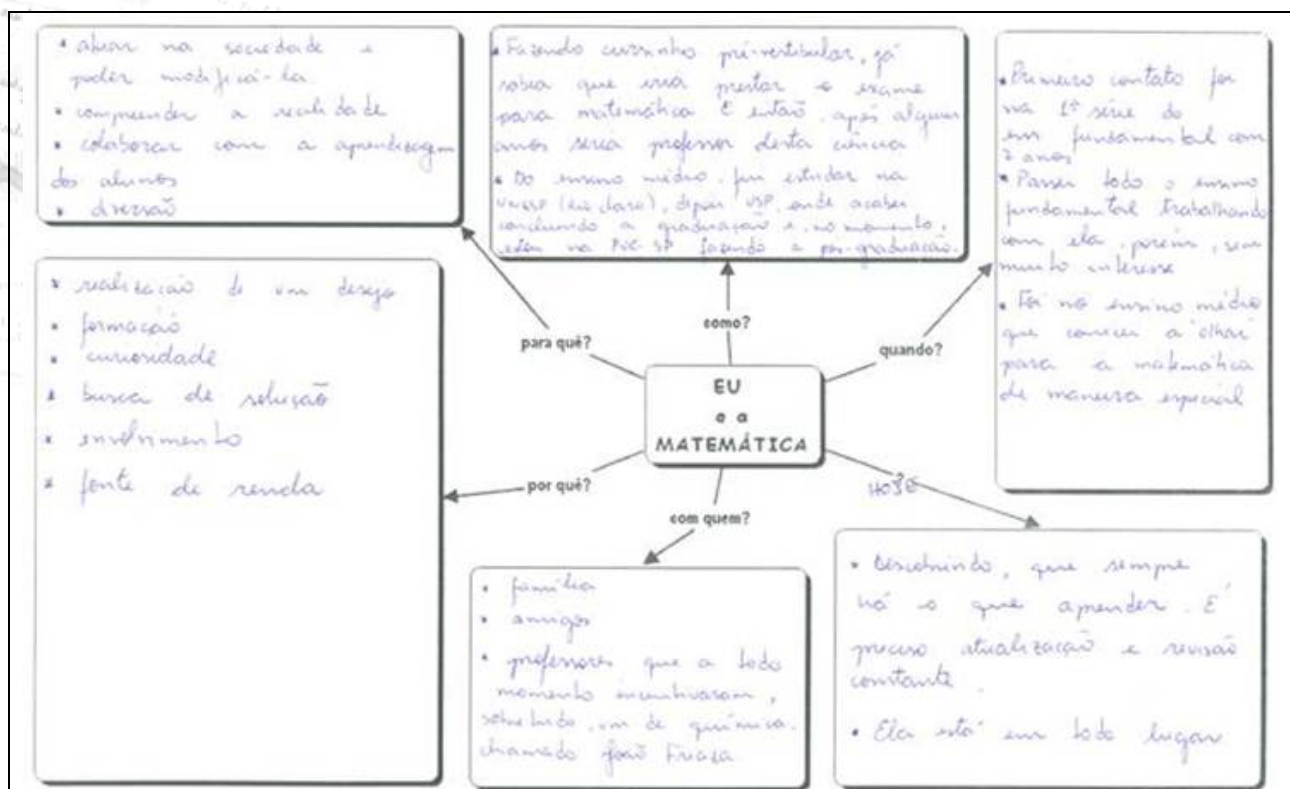 • atuar na sociedade e
poder modificá-la
• compreender a realidade
• colaborar com a aprendizagem
dos alunos
• diversão
• Fazendo cursinho pré-vestibular, já
sabia que iria prestar o exame
para matemática e então, após alguns
anos seria professor desta ciência
• Do ensino médio, fui estudar na
UNESP (Rio Claro), depois USP, onde acabei
concluindo a graduação e, no momento,
estou na PUC-SP fazendo a pós-graduação.
• Primeiro contato foi
na 1ª série do
en fundamental com
7 anos
• Passei todo o ensino
fundamental trabalhando
com ela, porém, sem
muito interesse
• Foi no ensino médio
que comecei a "olhar"
para a matemática
de maneira especial
para quê?
como?
quando?
EU
e a
MATEMÁTICA
por quê?
com quem?
?
HOJE
* realização de um desejo
• formação
• curiosidade
• busca de solução
* envolvimento
* fonte de renda
• família
• amigos
• professores que a todo
momento incentivaram,
sobretudo, um de química
chamado João
• Descobrindo, que sempre
há o que aprender. É
preciso atualização e revisão
constante.
• Ela está em todo lugar